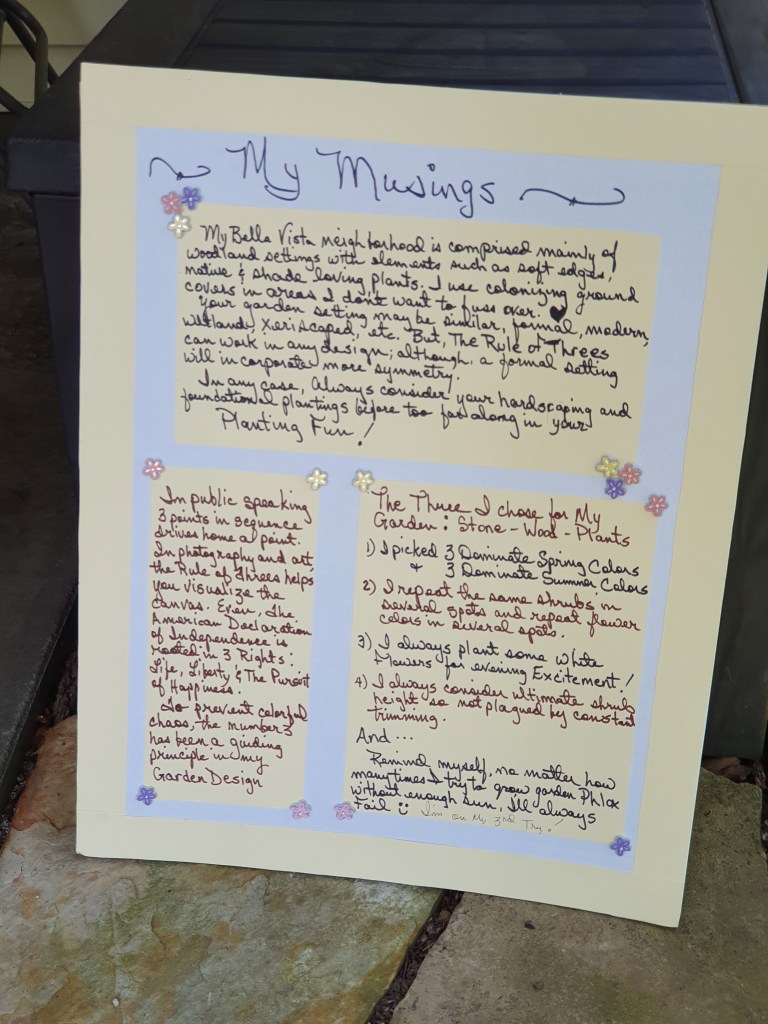 My Musings
My Bella Vista neighborhood is comprised mainly of
woodland settings with elements such as soft edges,
native & shade loving plants. I use colonizing ground
covers in areas I don't want to fuss over. ♥
Your garden setting may be similar, formal, modern,
wetlandy, xeriscaped, etc. But, The Rule of Threes
can work in any design; although, a formal setting
will incorporate more symmetry.
In any case, Always consider your hardscaping and
foundational plantings before too far along in your
Planting Fun!
In public speaking
3 points in sequence
drives home a point.
In photography and art,
the Rule of Threes helps
you visualize the
canvas. Even, the
American Declaration
of Independence is
rooted in 3 Rights:
Life, Liberty & The Pursuit
of Happiness.
To prevent colorful
chaos, the number 3
has been a guiding
principle in my
Garden Design
The Three I chose for My
Garden: Stone - Wood - Plants
1) I picked 3 Dominate Spring Colors
& 3 Dominate Summer Colors
2) I repeat the same shrubs in
several spots and repeat flower
colors in several spots.
3) I always plant some white
Flowers for evening Excitement!
4) I always consider ultimate shrub
height so not plagued by constant
trimming.
And...
Remind myself, no matter how
many times I try to grow garden Phlox
without enough sun, I'll always
Fail ü I'm on My 3rd Try!